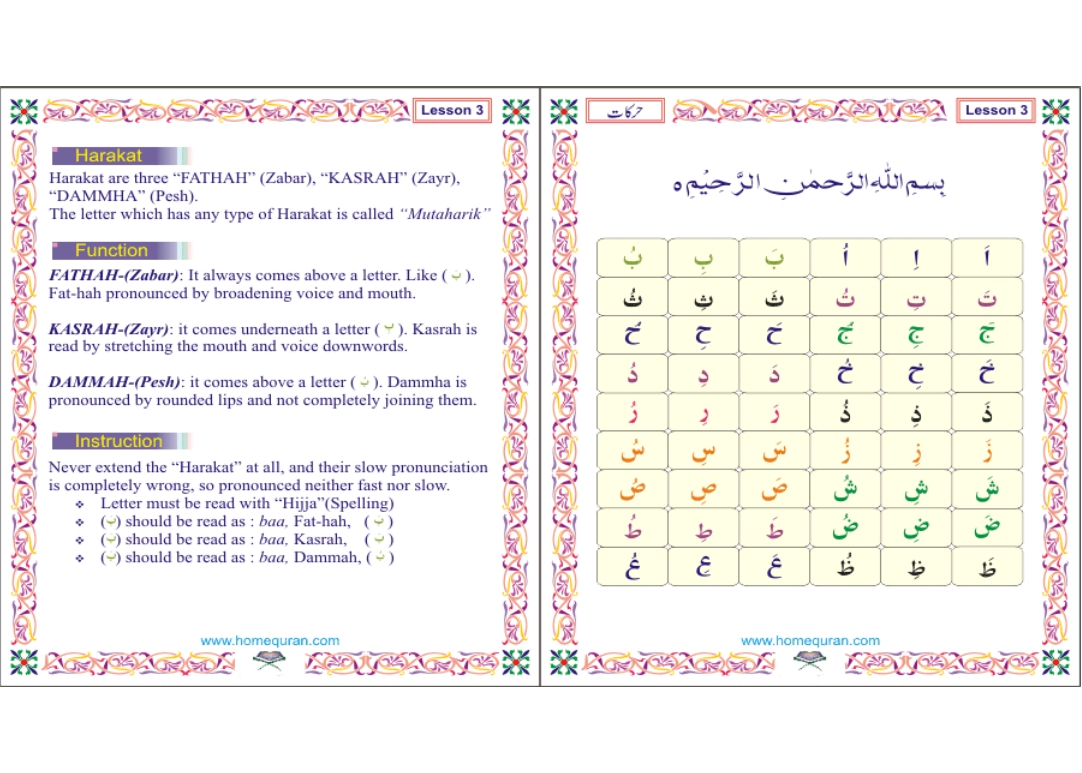 Lesson 3
Harakat
Harakat are three “FATHAH” (Zabar), “KASRAH” (Zayr),
“DAMMHA” (Pesh).
The letter which has any type of Harakat is called “Mutaharik”
Function
FATHAH-(Zabar): It always comes above a letter. Like ( بَ ).
Fat-hah pronounced by broadening voice and mouth.
KASRAH-(Zayr): it comes underneath a letter ( بِ ). Kasrah is
read by stretching the mouth and voice downwords.
DAMMAH-(Pesh): it comes above a letter ( بُ ). Dammha is
pronounced by rounded lips and not completely joining them.
Instruction
Never extend the “Harakat” at all, and their slow pronunciation
is completely wrong, so pronounced neither fast nor slow.
❖ Letter must be read with “Hijja”(Spelling)
❖ (بَ) should be read as : baa, Fat-hah, ( بَ )
❖ (بِ) should be read as : baa, Kasrah, ( بِ )
❖ (بُ) should be read as : baa, Dammah, ( بُ )
www.homequran.com
حرکات
Lesson 3
بِسمِ اللهِ الرَّحمٰنِ الرَّحِيْمِ ه
اَ اِ اُ بَ بِ بُ
تَ تِ تُ ثَ ثِ ثُ
جَ جِ جُ حَ حِ حُ
خَ خِ خُ دَ دِ دُ
ذَ ذِ ذُ رَ رِ رُ
زَ زِ زُ سَ سِ سُ
شَ شِ شُ صَ صِ صُ
ضَ ضِ ضُ طَ طِ طُ
ظَ ظِ ظُ عَ عِ عُ
www.homequran.com